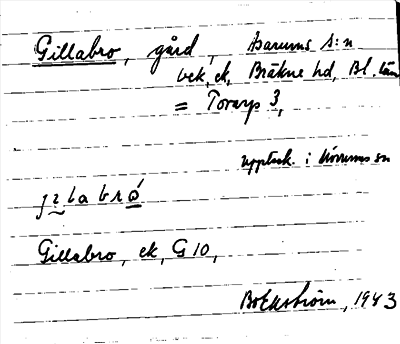 Gillabro, gård, Asarums s:n
bek, ek, Bräkne hd, Bl. län
= Torarp 3,
uppteck. i Mörrums sn
jɩlabró
Gillabro, ek, G 10,
Bo Ekström, 1943